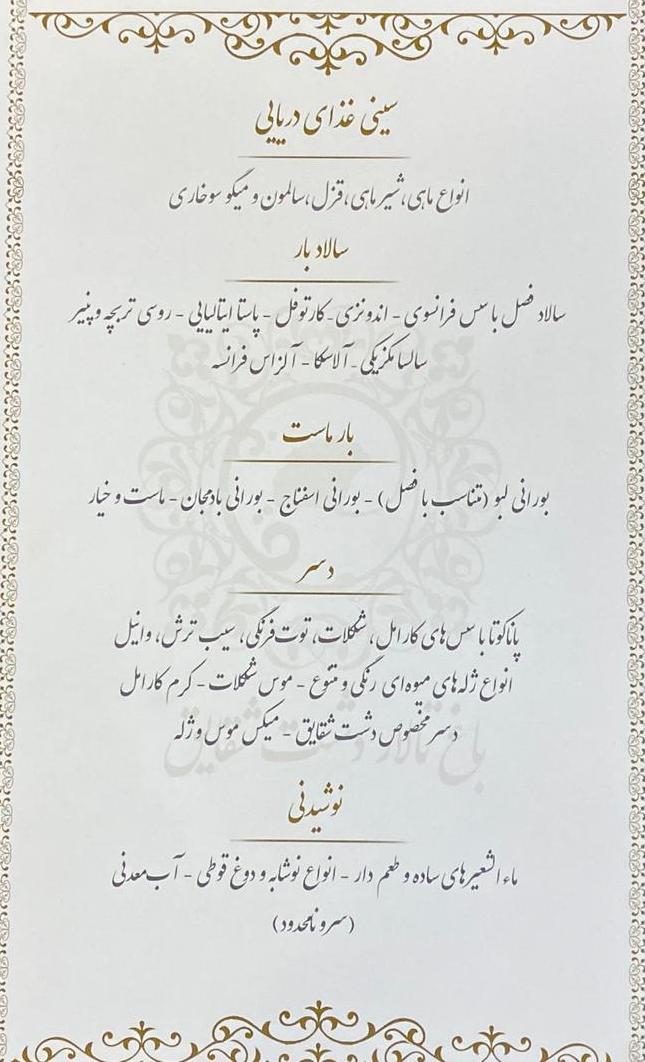 سینی غذای دریایی
انواع ماهی، شیر ماهی، قزل، سالمون و میگو سوخاری
سالاد بار
سالاد فصل با سس فرانسوی - اندونزی - کارتوفل - پاستا ایتالیایی - روسی تربچه و پنیر
سالسا مکزیکی - آلاسکا - آلزاس فرانسه
بار ماست
بورانی لبو (متناسب با فصل) - بورانی اسفناج - بورانی بادمجان - ماست و خیار
دسر
پاناکوتا با سس‌های کارامل، شکلات، توت فرنگی، سیب ترش، وانیل
انواع ژله‌های میوه‌ای رنگی و متنوع - موس شکلات - کرم کارامل
دسر مخصوص دشت شقایق - میکس موس و ژله
باغ تالار دشت شقایق
نوشیدنی
ماء الشعیرهای ساده و طعم دار - انواع نوشابه و دوغ قوطی - آب معدنی
(سرو نامحدود)